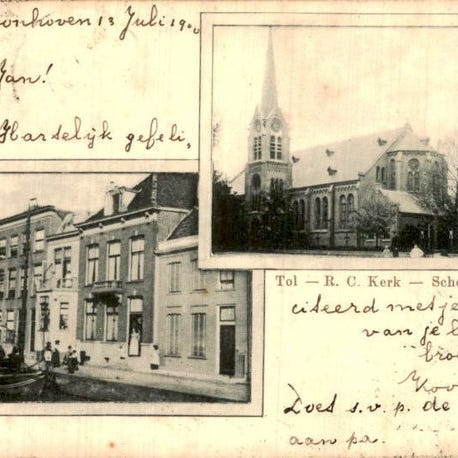 onhoven 13 Juli 190
Jan!
Hartelijk gefeli,
Tol — R. C. Kerk — Scho
citeerd met je
van je b
bro
Koo
Does s.v.p. de
aan pa.